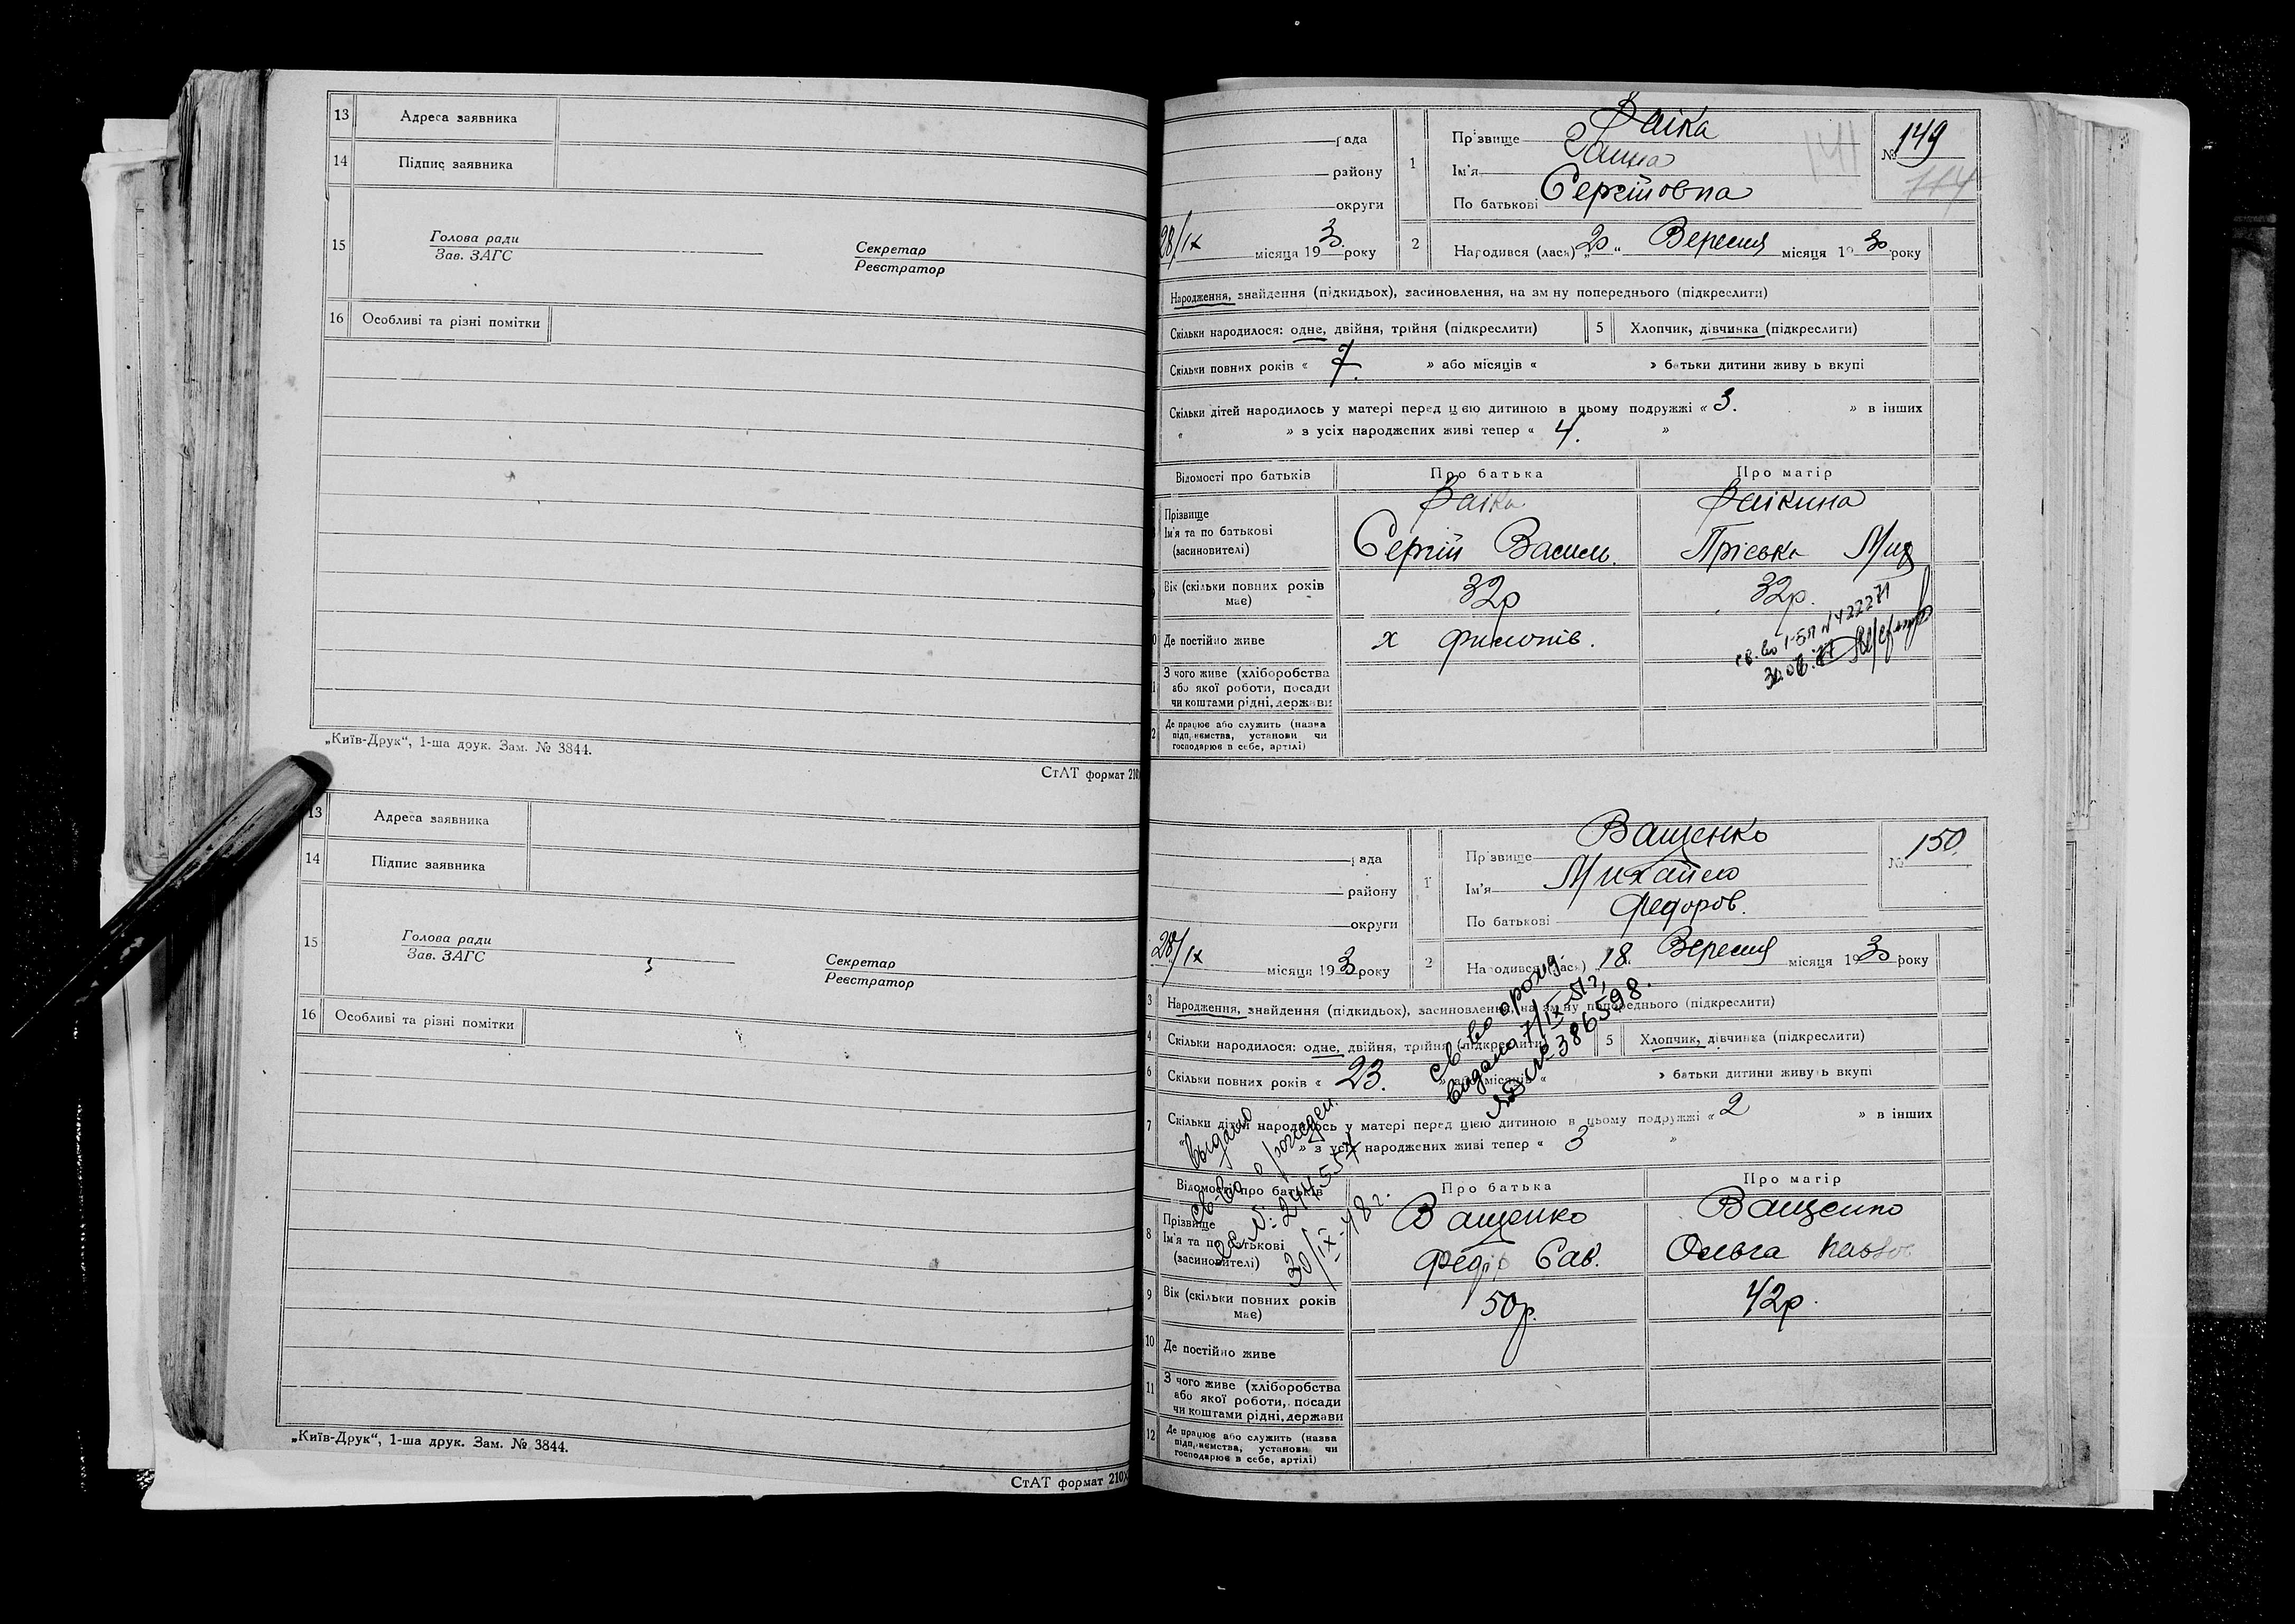 13 Адреса заявника
14 Підпис заявника
15 Голова ради
Зав. ЗАГС
Секретар
Реєстратор
16 Особливі та різні помітки
„Київ-Друк“, 1-ша друк. Зам. № 3844.
СтАТ формат 210
13 Адреса заявника
14 Підпис заявника
15 Голова ради
Зав. ЗАГС
Секретар
Реєстратор
16 Особливі та різні помітки
„Київ-Друк“, 1-ша друк. Зам. № 3844.
СтАТ формат 210
рада
району
округи
28/IX місяця 193 року
1 Прізвище
Ім'я Ганна
По батькові Сергіївна
№ 149
141
114
2 Народився (лася) „20“ Вересня місяця 1930 року
Народження, знайдення (підкидьох), засиновлення, на зміну попереднього (підкреслити)
Скільки народилося: одне, двійня, трійня (підкреслити) 5 Хлопчик, дівчинка (підкреслити)
Скільки повних років « 7. » або місяців « » батьки дитини живуть вкупі
Скільки дітей народилось у матері перед цією дитиною в цьому подружжі « 3. » в інших
« » з усіх народжених живі тепер « 4. »
Відомості про батьків Про батька Про матір
Прізвище
Ім'я та по батькові
(засиновителі)
Сергій Василь. Пріська Мих
Вік (скільки повних років має) 32р 32р.
Де постійно живе х Филонів.
св. во I-БП № 422271
З чого живе (хліборобства
або якої роботи, посади
чи коштами рідні, держави
Де працює або служить (назва
підприємства, установи чи
господарює в себе, артілі)
рада
району
округи
28/IX місяця 193 року
1 Прізвище Ващенко
Ім'я Михайло
По батькові Федоров.
№ 150.
2 Народився (лася) „18. Вересня місяця 1930 року
3 Народження, знайдення (підкидьох), засиновлення, на зміну попереднього (підкреслити)
4 Скільки народилося: одне, двійня, трійня (підкреслити) 5 Хлопчик, дівчинка (підкреслити)
6 Скільки повних років « 23. » або місяців « » батьки дитини живуть вкупі
7 Скільки дітей народилось у матері перед цією дитиною в цьому подружжі « 2 » в інших
» з усіх народжених живі тепер « 3 »
Св-во о рожд.
Видано 7/IX-51 г.
№ 386598.
Выдано
св-во о рожден.
№: 244557
30/IX-48 г.
Відомості про батьків Про батька Про матір
8 Прізвище
Ім'я та по батькові
(засиновителі)
Ващенко Ващенко
Федір Сав. Ольга Павлов
9 Вік (скільки повних років має) 50р. 42р.
10 Де постійно живе
11 З чого живе (хліборобства
або якої роботи, посади
чи коштами рідні, держави
12 Де працює або служить (назва
підприємства, установи чи
господарює в себе, артілі)